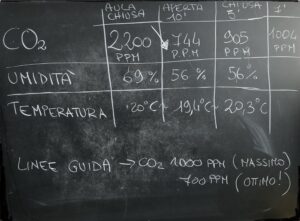 AULA CHIUSA APERTA 10' CHIUSA 5' 1'
CO2 2200 PPM 744 P.P.M 905 PPM 1004 PPM
UMIDITÀ 69% 56% 56%
TEMPERATURA 20°C 19,4°C 20,3°C
LINEE GUIDA → CO2 1000 PPM (MASSIMO)
700 PPM (OTTIMO!)